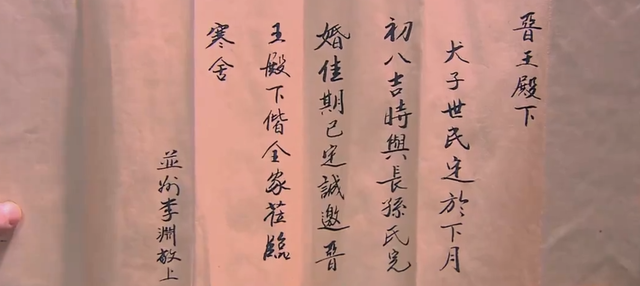 晉王殿下
犬子世民定於下月
初八吉時與長孫氏完
婚佳期已定誠邀晉
王殿下偕全家莅臨
寒舍
並州李淵敬上